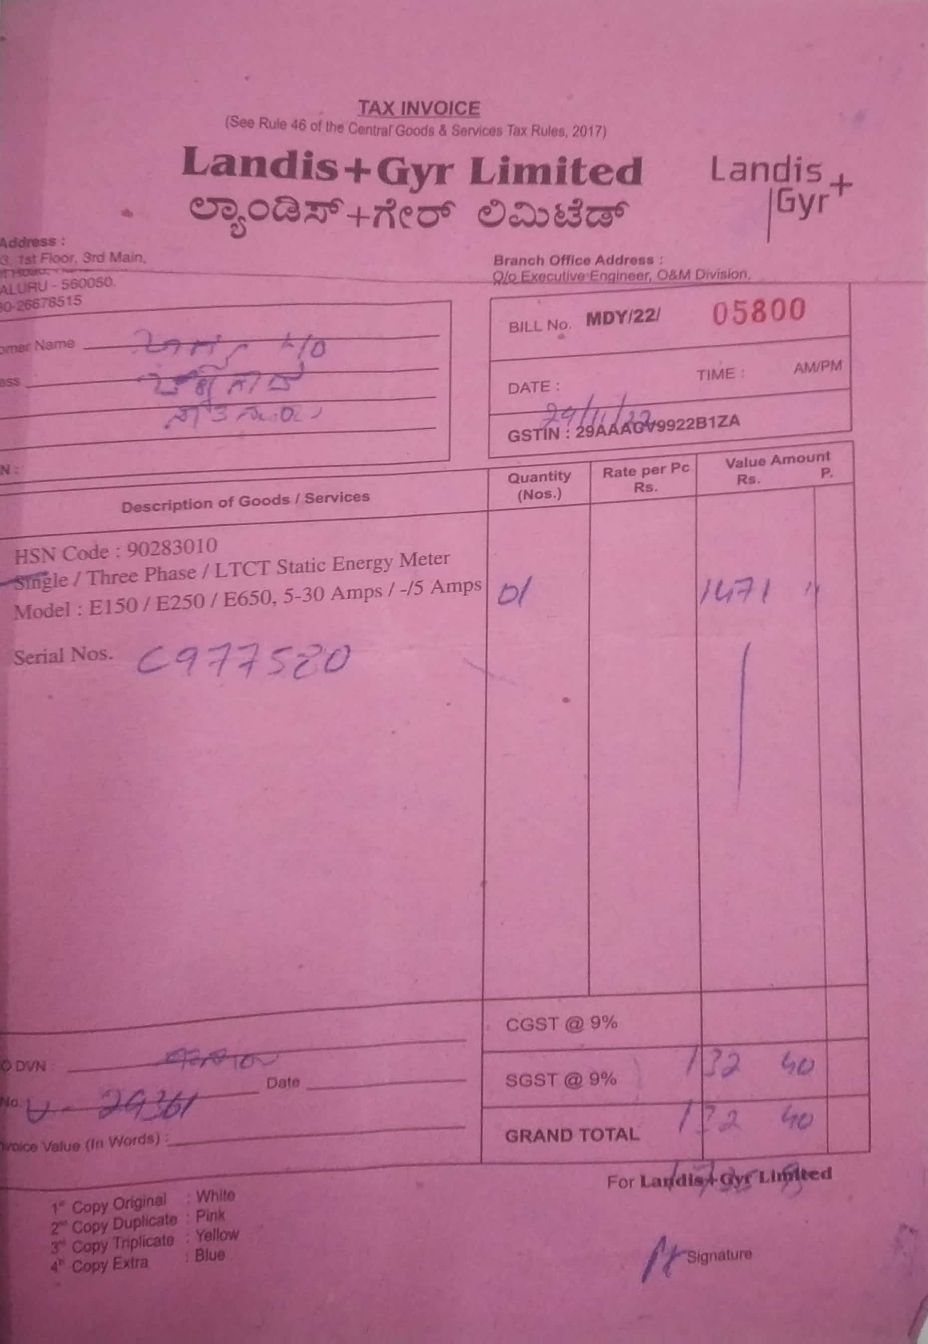 TAX INVOICE
(See Rule 46 of the Central Goods & Services Tax Rules, 2017)
Landis+Gyr Limited
ಲ್ಯಾಂಡಿಸ್+ಗೇರ್ ಲಿಮಿಟೆಡ್
Landis
Gyr+
Address :
3, 1st Floor, 3rd Main,
ALURU - 560050.
80-26678515
Branch Office Address :
O/o Executive Engineer, O&M Division,
omer Name
ess
N :
BILL No. MDY/22/ 05800
DATE : 29/11/22 TIME : AM/PM
GSTIN : 29AAAGV9922B1ZA
Description of Goods / Services
Quantity (Nos.)
Rate per Pc Rs.
Value Amount Rs. P.
HSN Code : 90283010
Single / Three Phase / LTCT Static Energy Meter
Model : E150 / E250 / E650, 5-30 Amps / -/5 Amps 01 1471 "
Serial Nos. C977520
CGST @ 9%
SGST @ 9% 132 40
GRAND TOTAL 132 40
O DVN :
No. Date
nvoice Value (In Words) :
For Landis+Gyr Limited
1st Copy Original : White
2nd Copy Duplicate : Pink
3rd Copy Triplicate : Yellow
4th Copy Extra : Blue
Signature